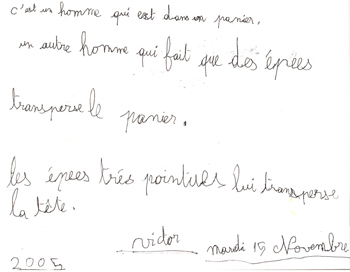 c'est un homme qui est dans un panier.
un autre homme qui fait que des épées
transperse le panier.
les épees trés pointues lui transperse
la tête.
victor mardi 15 Novembre
2005